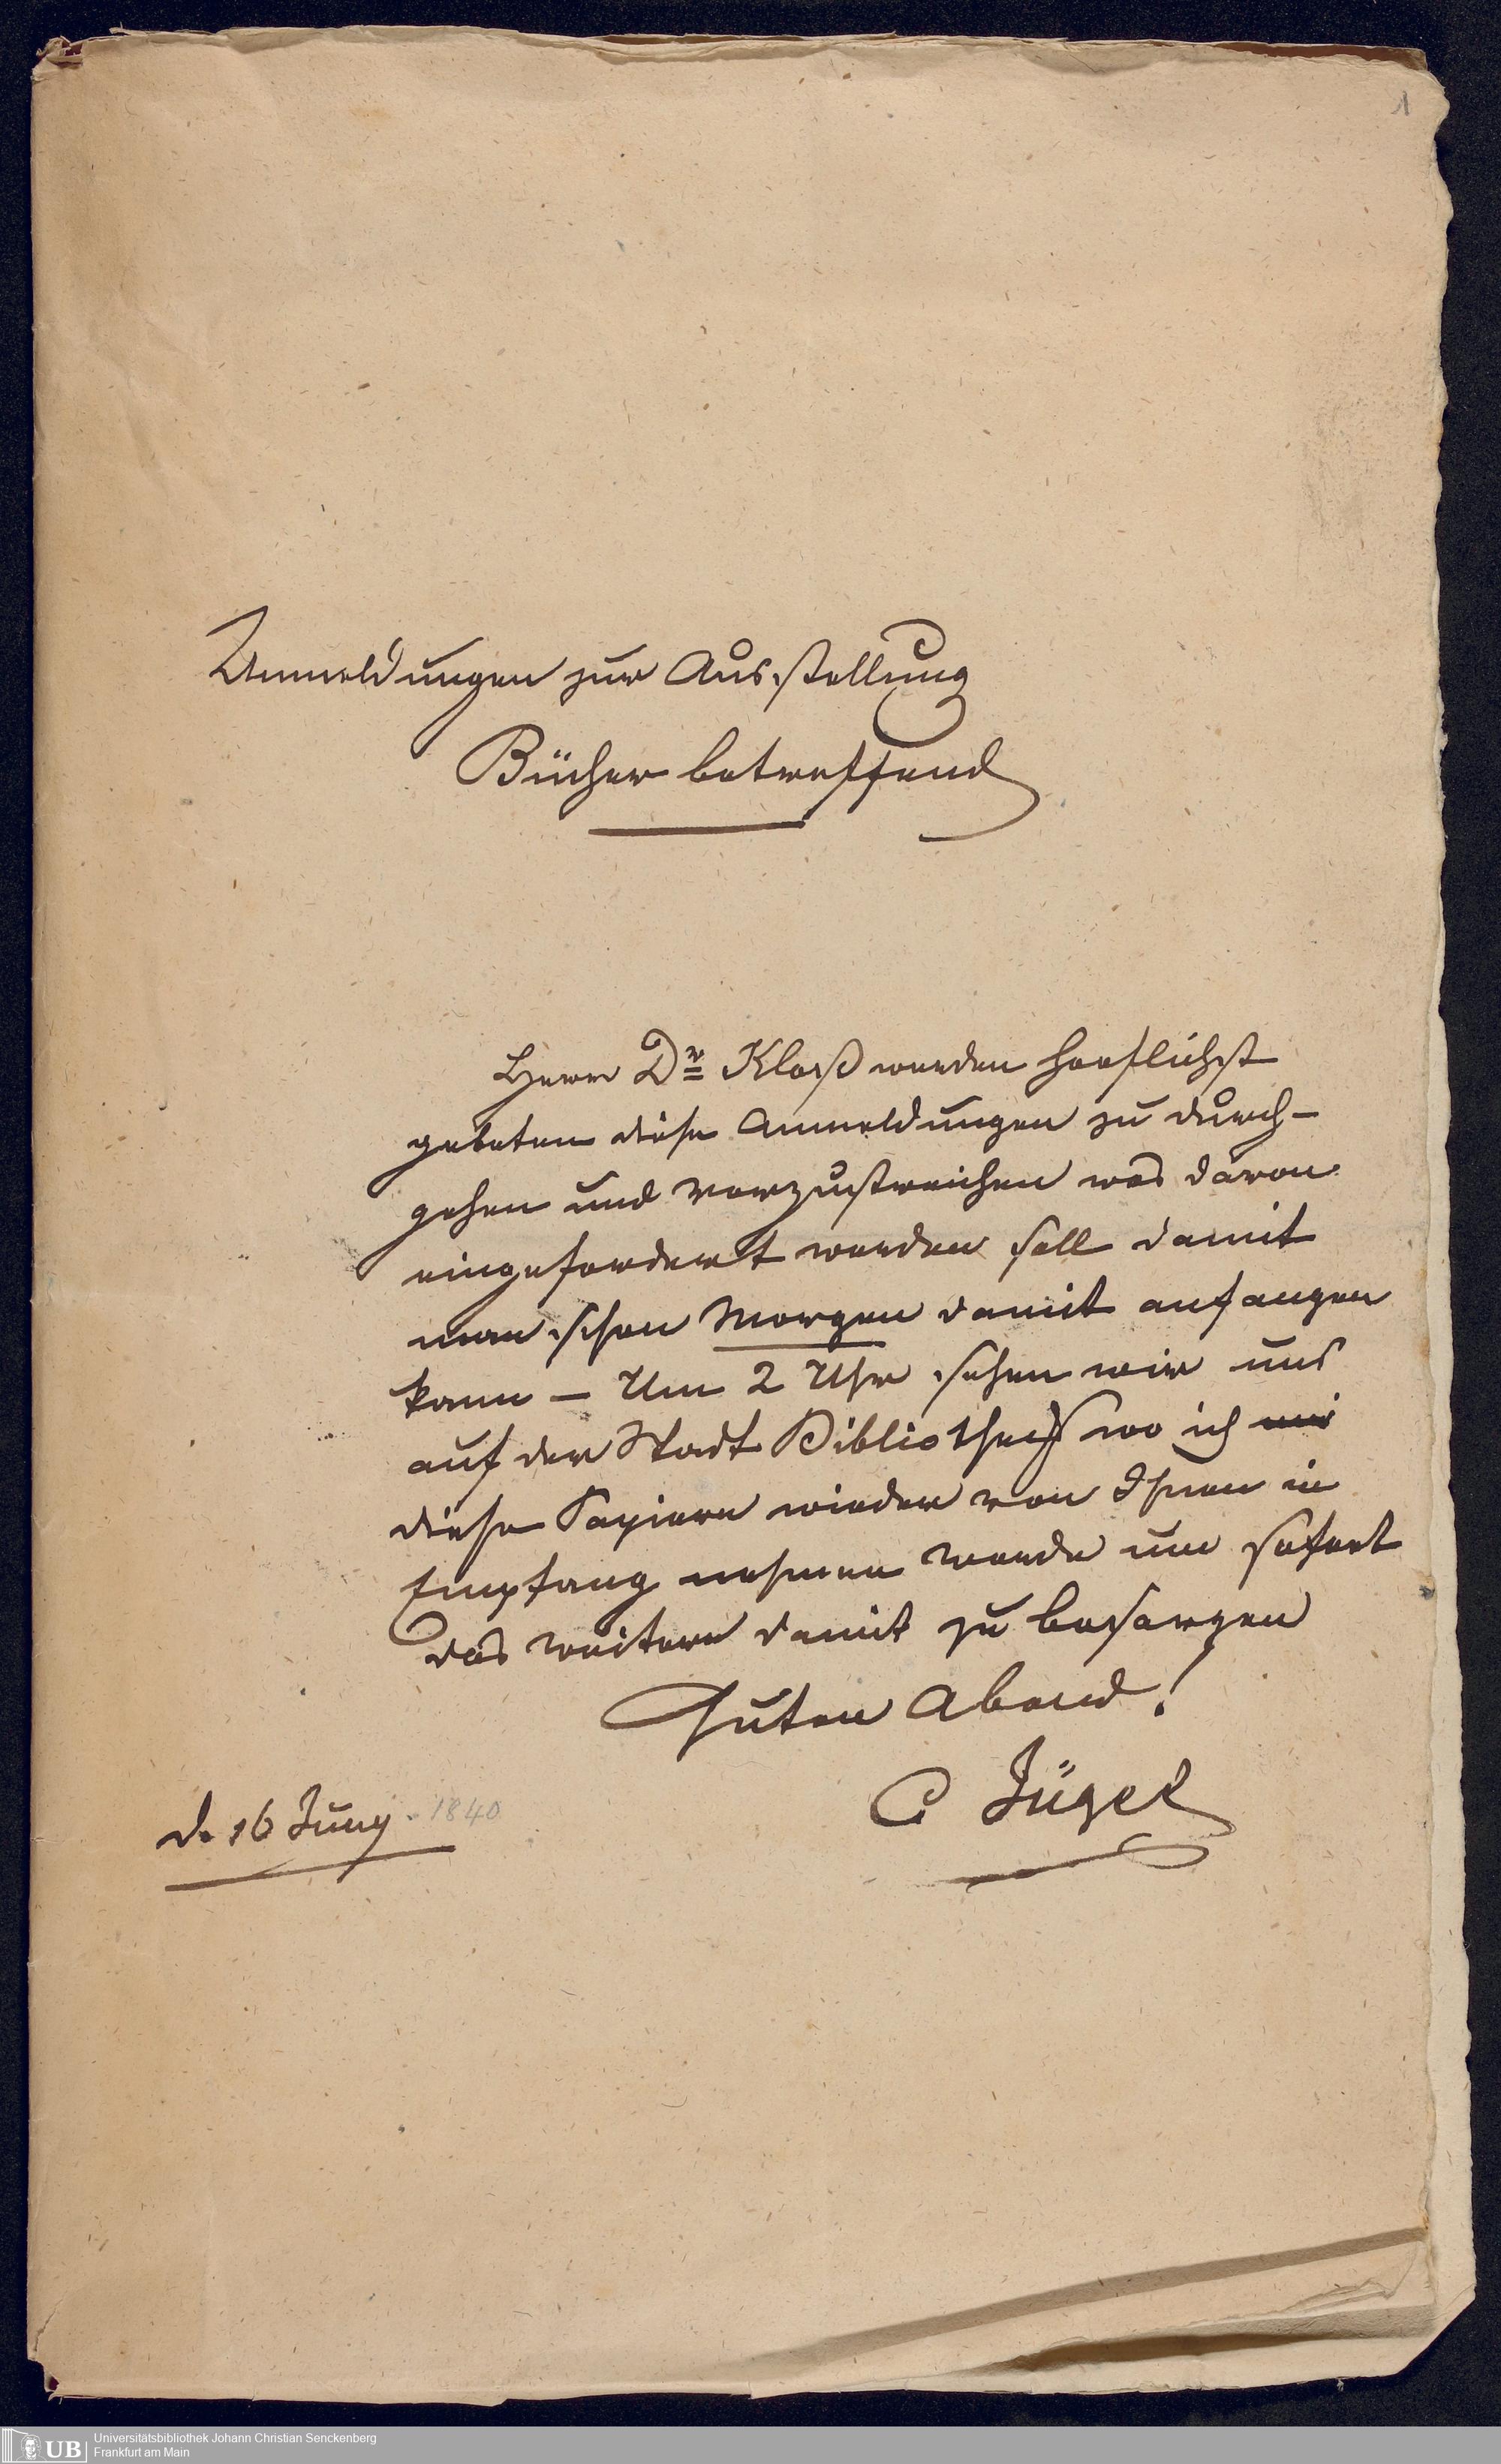 1
Anmeldungen zur Ausstellung
Bücher betreffend
Herrn Dr Kloß werden hoeflichst
gebeten diese Anmeldungen zu durch-
gehen und vorzustreichen was davon
eingefordert werden soll damit
man schon Morgen damit anfangen
kann – Um 2 Uhr sehen wir uns
auf der Stadt Bibliothek wo ich mir
diese Papiere wieder von Ihnen in
Empfang nehmen werde um sofort
das weitere damit zu besorgen
Guten Abend!
C Jügel
d. 16 Juny 1840
UB
Universitätsbibliothek Johann Christian Senckenberg
Frankfurt am Main